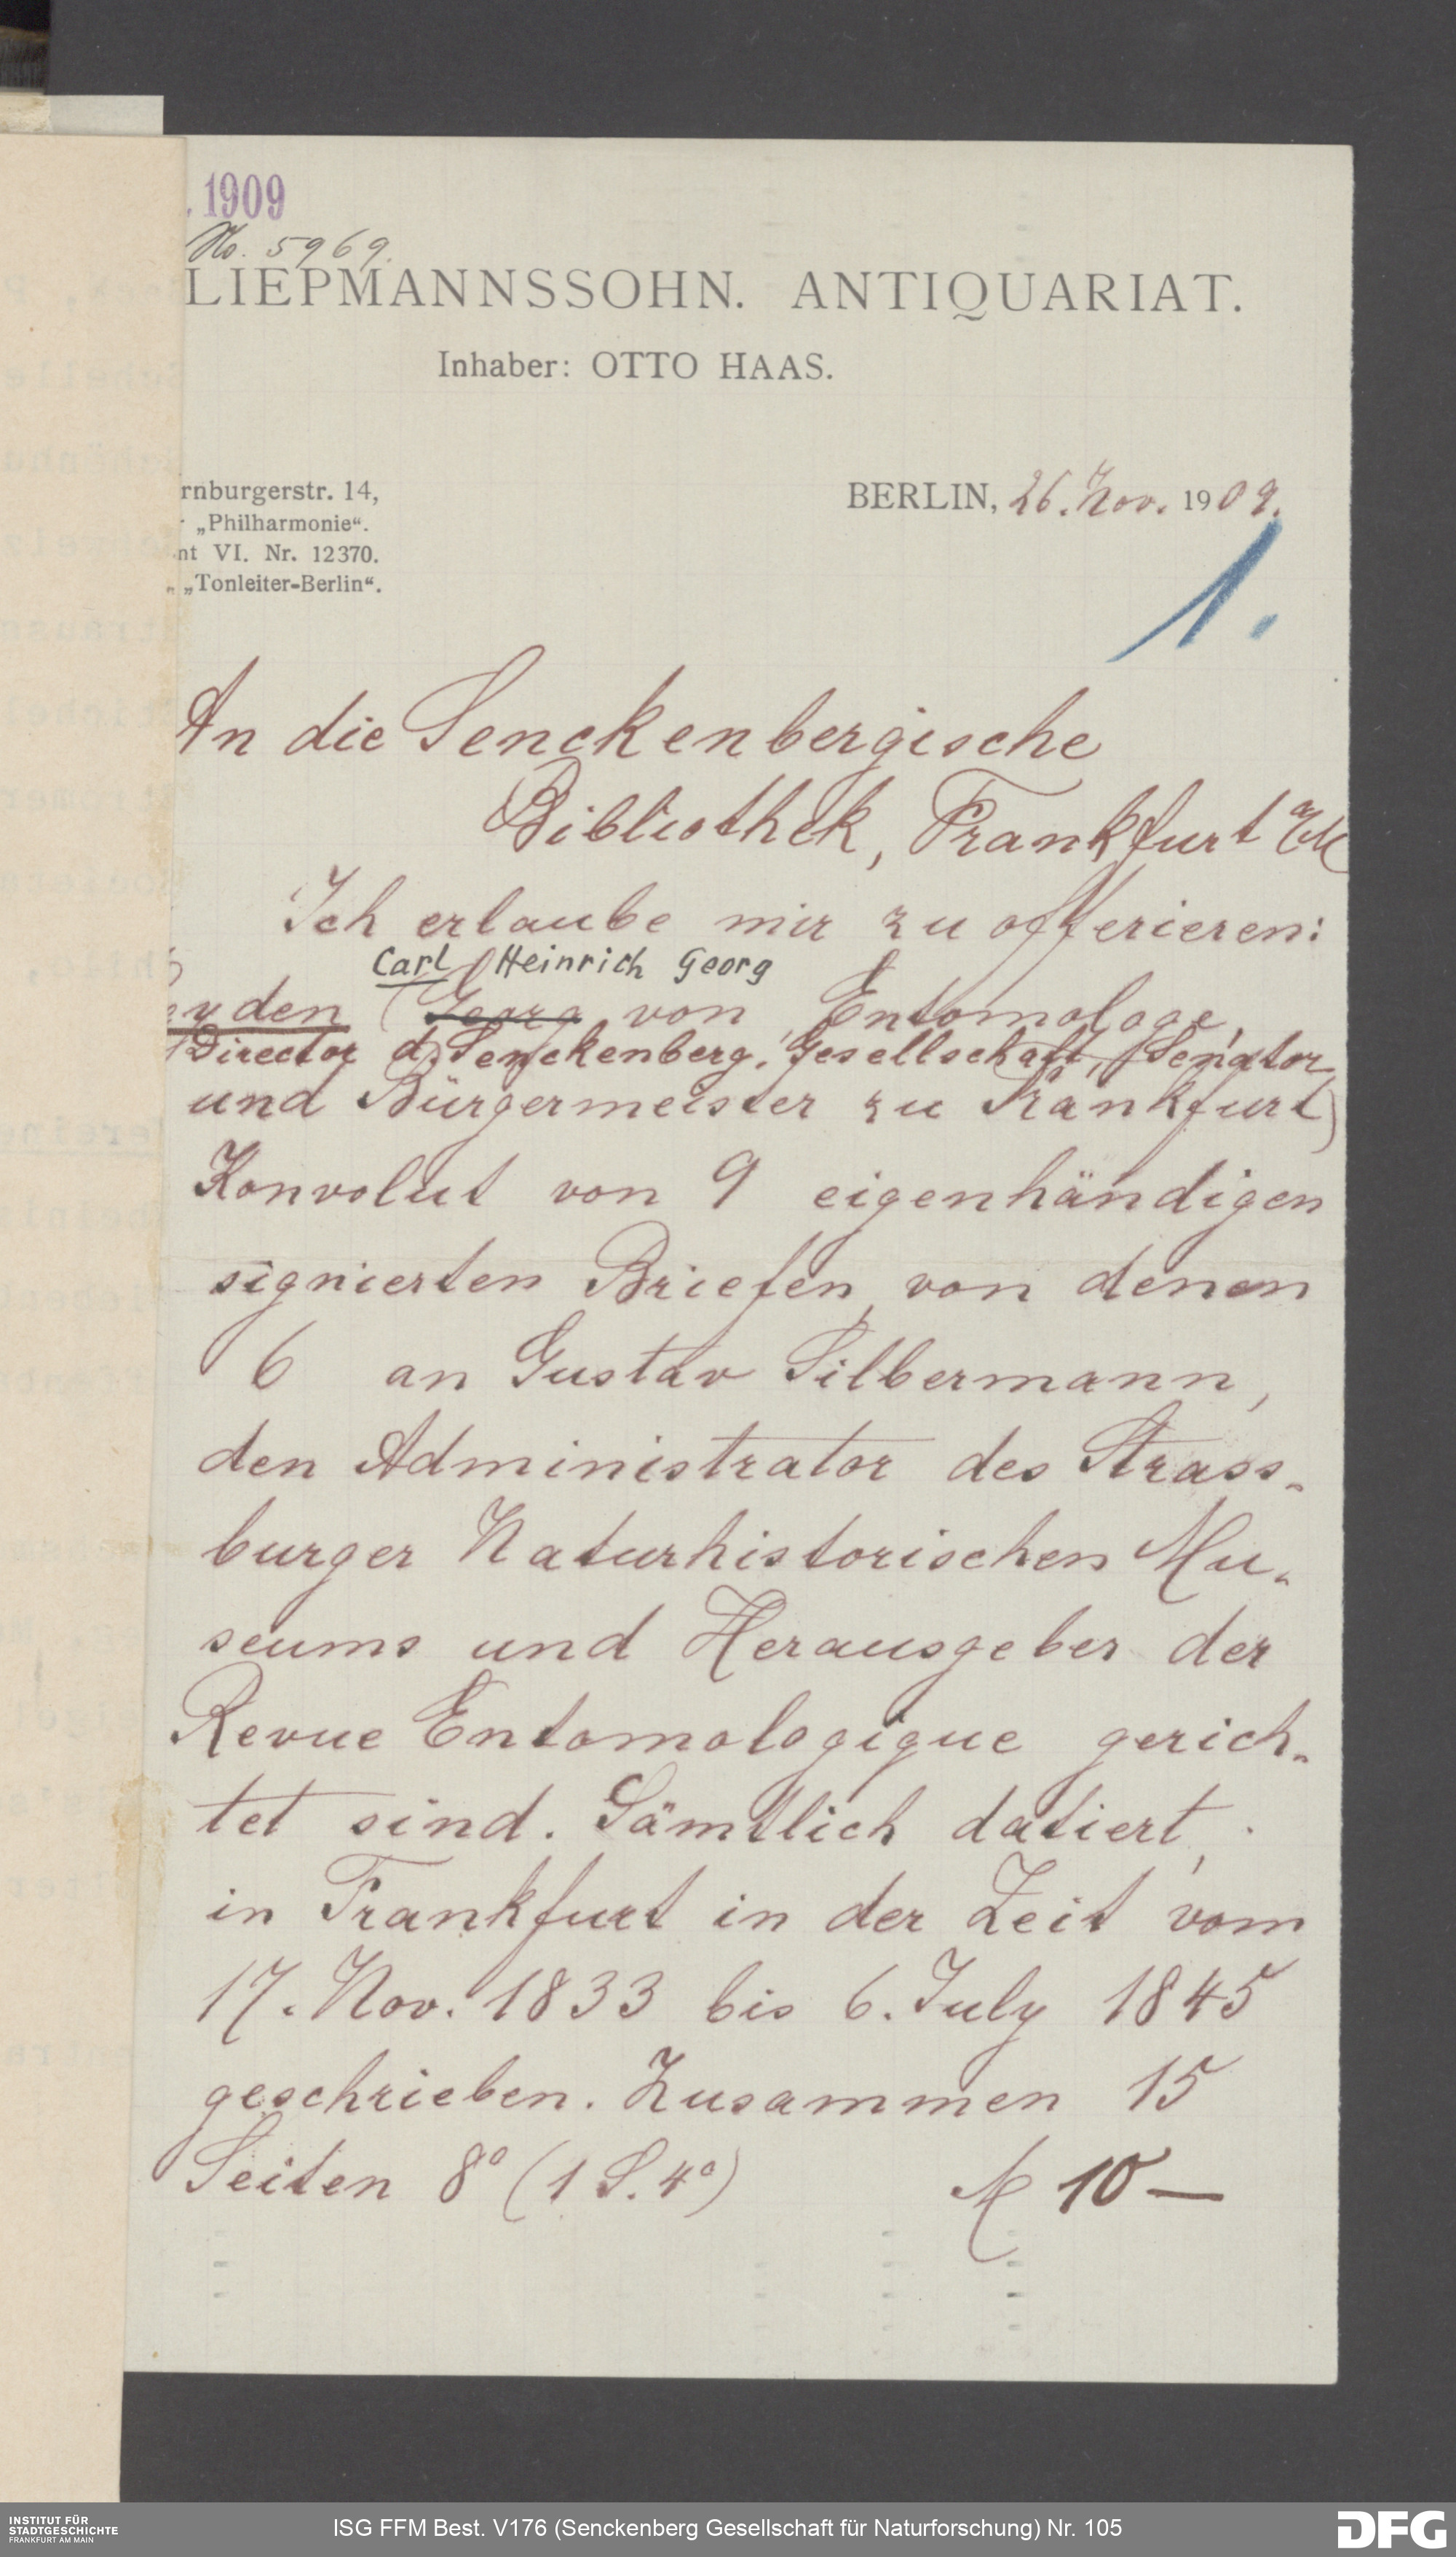 . 1909
No. 5969.
LIEPMANNSSOHN. ANTIQUARIAT.
Inhaber: OTTO HAAS.
rnburgerstr. 14,
„Philharmonie“.
nt VI. Nr. 12370.
„Tonleiter-Berlin“.
BERLIN, 26. Nov. 1909.
1.
An die Senckenbergische
Bibliothek, Frankfurt a/M
Ich erlaube mir zu offerieren:
Carl Heinrich Georg
yden (Georg von, Entomologe,
Director d. Senckenberg. Gesellschaft, Senator
und Bürgermeister zu Frankfurt)
Konvolut von 9 eigenhändigen
signierten Briefen, von denen
6 an Gustav Silbermann,
den Administrator des Strass-
burger Naturhistorischen Mu-
seums und Herausgeber der
Revue Entomologique gerich-
tet sind. Sämtlich datiert,
in Frankfurt in der Zeit vom
17. Nov. 1833 bis 6. July 1845
geschrieben. Zusammen 15
Seiten 8° (1 S. 4°) M 10—
INSTITUT FÜR
STADTGESCHICHTE
FRANKFURT AM MAIN
ISG FFM Best. V176 (Senckenberg Gesellschaft für Naturforschung) Nr. 105
DFG